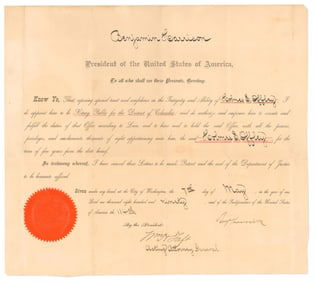 Benjamin Harrison
President of the United States of America,
To all who shall see these Presents, Greeting:
Know Ye, That reposing special trust and confidence in the Integrity and Ability of I
do appoint him to be Notary Public for the District of Columbia; and do authorize and empower him to execute and
fulfill the duties of that Office according to Law, and to have and to hold the Office with all the powers,
privileges, and emoluments thereunto of right appertaining unto him the said for the
term of five years from the date hereof.
In testimony whereof, I have caused these Letters to be made Patent and the seal of the Department of Justice
to be hereunto affixed.
Given under my hand at the City of Washington, the 7th day of May in the year of our
Lord one thousand eight hundred and ninety and of the Independence of the United States
of America the 114th
By the President:
Acting Attorney General